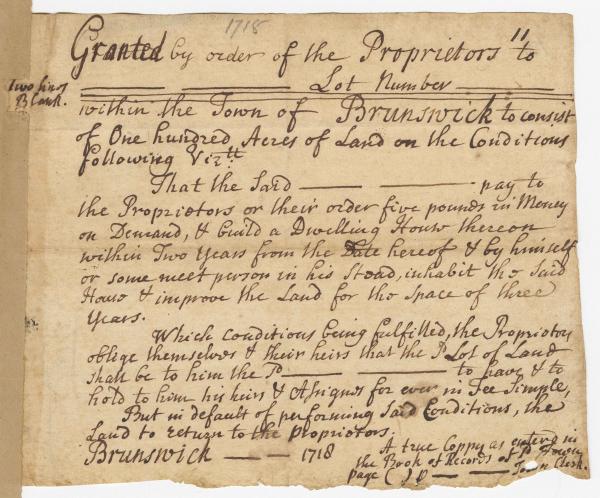 1718
Granted by order of the Proprietors " to
Lot Number
Two lines
Blank.
within the Town of Brunswick to consist
of One hundred Acres of Land on the Conditions
following Viztt
That the Said pay to
the Proprietors or their order five pounds in Money
on Demand, & build a Dwelling House thereon
within Two Years from the Date hereof & by himself
or some meet person in his Stead, inhabit the Said
House & improve the Land for the Space of three
Years.
Which Conditions being fulfilled, the Proprietors
oblige themselves & their heirs that the Sd Lot of Land
shall be to him the Sd to have & to
hold to him his heirs & Assignes for ever in Fee Simple,
But in default of performing Said Conditions, the
Land to return to the Proprietors.
Brunswick 1718
A true Coppy as enterd in
the Book of Records of Sd Town
page ( ) p Town Clerk.